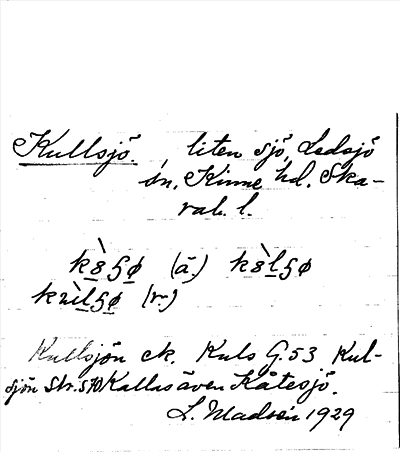 Kullsjö. liten sjö, Ledsjö
sn, Kinne hd. Ska-
rab. l.
kὸ8ʂø (ä.) k8lʂø
(r.)
Kullsjön ek. Kuls G. 53 Kul-
sjön Str. 570 Kallas även Kåtesjö.
L. Madsén 1929